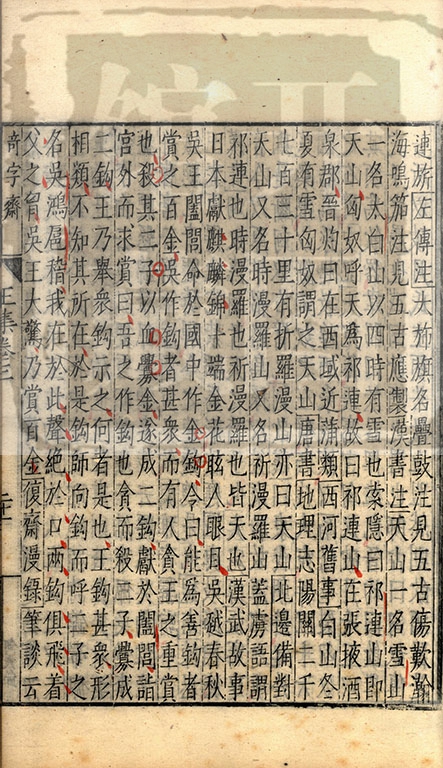 連旂左傳注大斾旗名疊鼓注見五古傷歎翰
海鳴笳注見五古應製漢書注天山一名雪山
一名太白山以四時有雪也索隱曰祁連山即
天山匈奴呼天爲祁連故曰祁連山在張掖酒
泉郡晉灼曰在西域近蒲類西河舊事白山冬
夏有雪匈奴謂之天山唐書地理志陽關二千
七百三十里有折羅漫山亦曰天山北邊備對
天山又名時漫羅山又名祈漫羅山蓋虜語謂
祁連也時漫羅也祈漫羅也皆天也漢武故事
日本獻麒麟錦十端金花眩人眼目吳越春秋
吳王闔閭命於國中作金鉤令曰能爲善鉤者
賞之百金吳作鉤者甚衆而有人貪王之重賞
也殺其二子以血釁金遂成二鉤獻於闔閭詣
宮外而求賞曰吾之作鉤也貪而殺二子釁成
二鉤王乃舉衆鉤示之何者是也王鉤甚衆形
相類不知其所在於是鉤師向鉤而呼二子之
名吳鴻扈稽我在於此聲絶於口兩鉤俱飛着
父之胷吳王大驚乃賞百金復齋漫錄筆談云
奇字齋 王集卷三